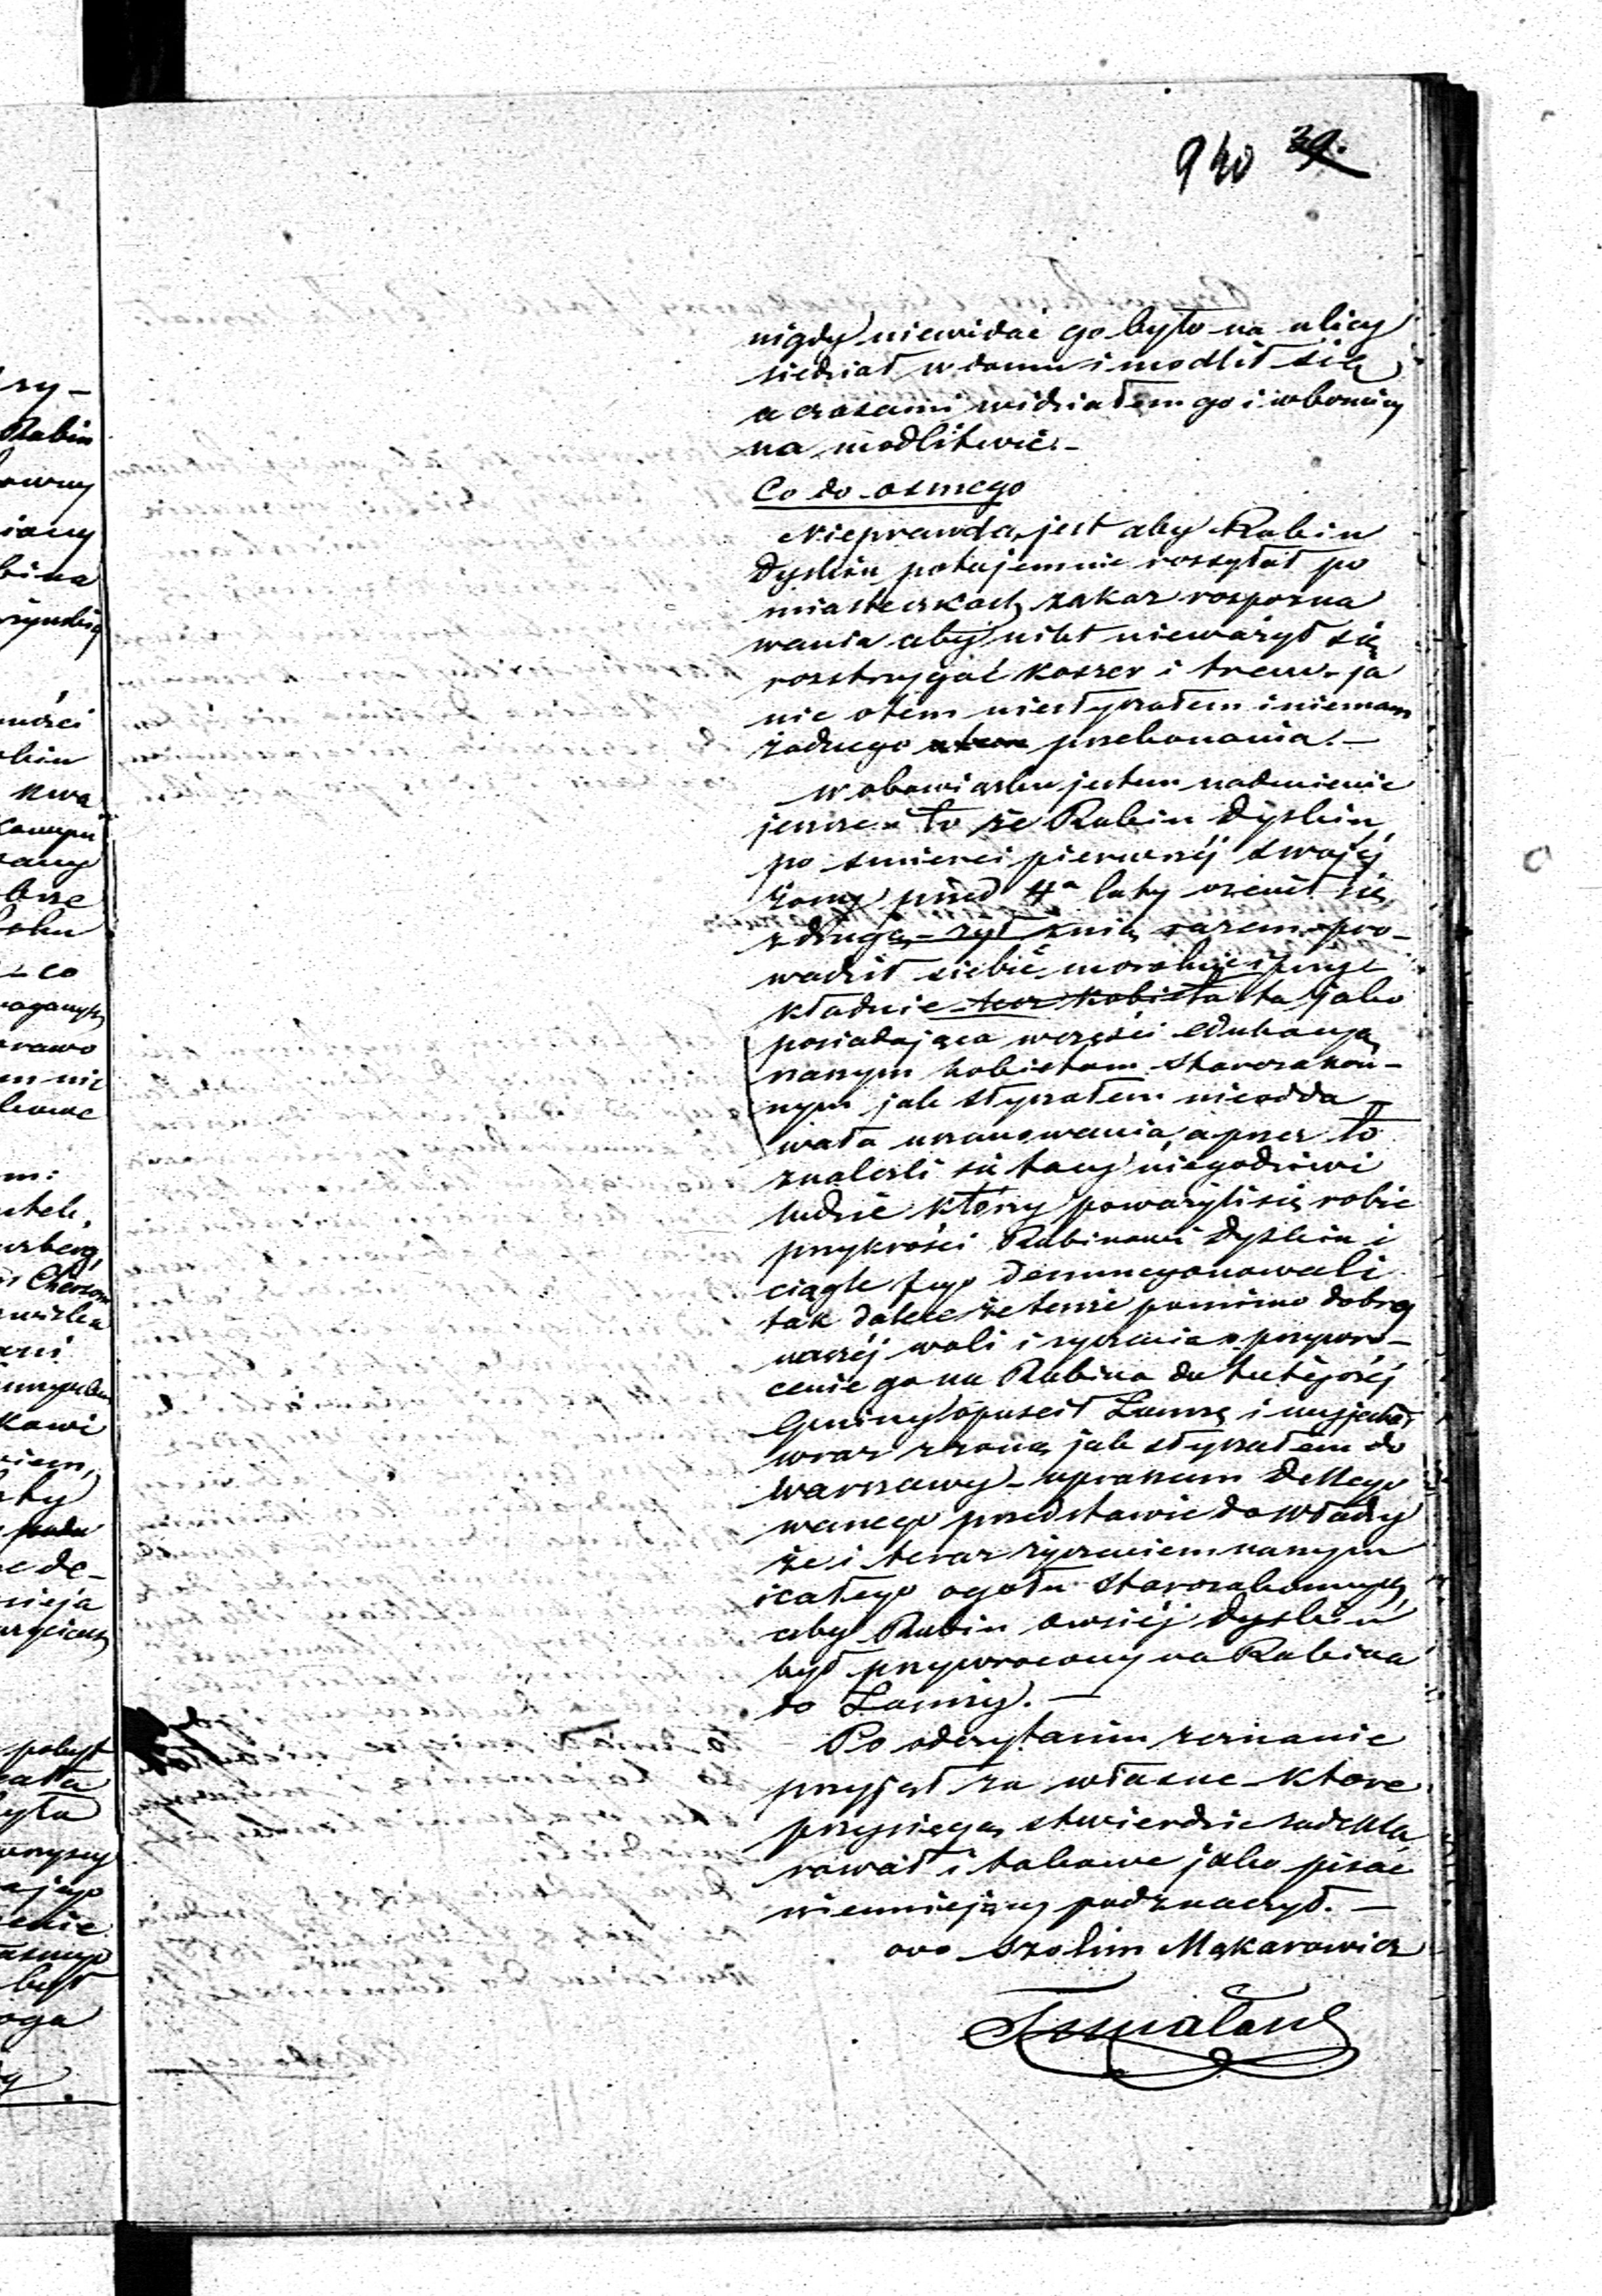 940 39.
nigdy niewidać go było na ulicy
siedział w domu i modlił się
a czasami widziałem go i wbożnicy
na modlitwie. –
Co do osmego
Nieprawdą jest aby Rabin
Dyskin potajemnie rozsyłał po
miasteczkach zakaz rospozna
wania aby nikt nieważył się
rozstrzygać koszer i tref – ja
nic otem niesłyszałem i niemam
żadnego przekonania. –
w obowiązku jestem nadmienic
jeszcze to że Rabin Dyskin
po smierci pierwszéj swojéj
żony przed 4a laty ożenił się
z drugą – żył znią razem pro-
wadził siebie moralnie i przy
kładnie – lecz kobieta ta jako
posiadająca wczęści edukacyą
naszym kobietom starozakon-
nym jak słyszałem nieodda –
wała uszanowania, a przez to
znalezli się tacy niegodziwi
ludzie którzy poważyli się robic
przykrości Rabinowi Dyskin i
ciągle jego denuncyonowali
tak dalece że tenże pomimo dobrej
naszéj woli i życzenia przywró-
cenie go na Rabina do tutejszéj
Gminy opuscił Łomżę i wyjechał
wraz z żoną jak słyszałem do
Warszawy – upraszam Delego
wanego przedstawic do władzy
że i teraz życzeniem naszym
i całego ogołu starozakonnych
aby Rabin Owsiéj Dyskin
był przywrócony na Rabina
do Łomży. –
Po odczytaniu zeznanie
przyjął za własne – ktore
przysięgą stwierdzic zadekla
rował i takowe jako pisać
nieumiejący podznaczył. –
ooo Szolim Mąkarowicz